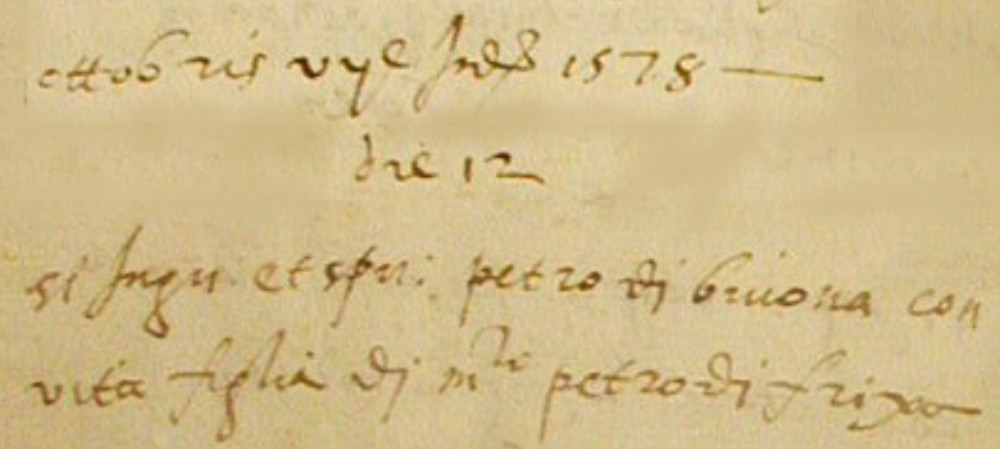 ottobris vij e Ind. 1578
die 12
si Ingu: et spu: petro di biuona con
vita figlia di m.ro petro di frixa